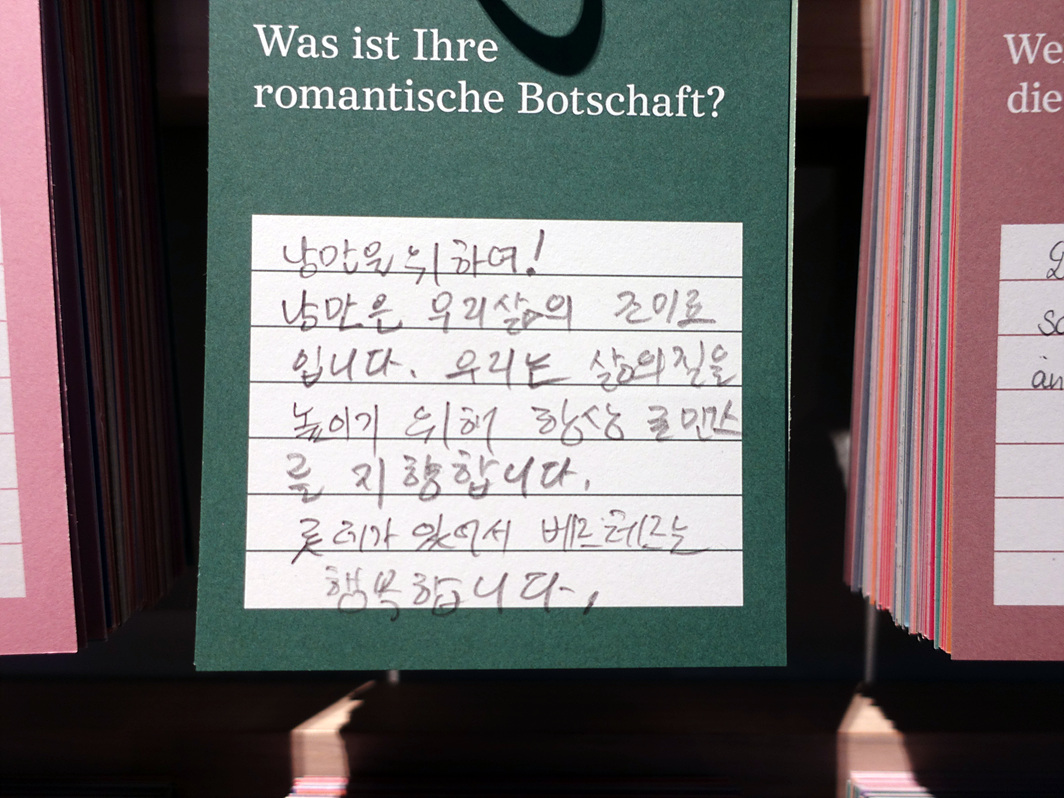 Was ist Ihre
romantische Botschaft?
낭만을 위하여!
낭만은 우리삶의 조미료
입니다. 우리는 삶의질을
높이기 위해 항상 로맨스
를 지향합니다.
롯데가 있어서 베르테르는
행복합니다.
We
die
so
än